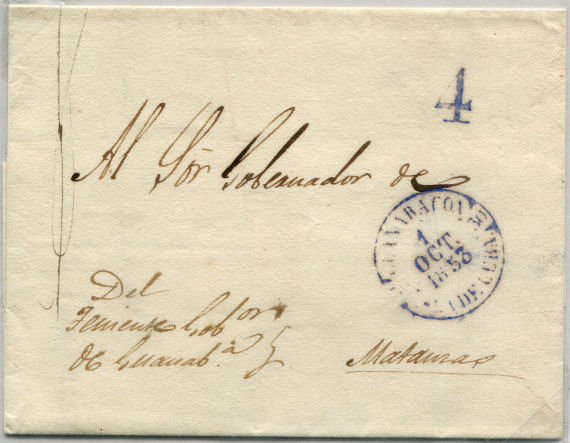 4
Al Sõr Gobernador de
GUANABACOA
1
OCT.
1853
ISLA DE CUBA
Del
Teniente Gob.or
de Guanab.a
Matanzas